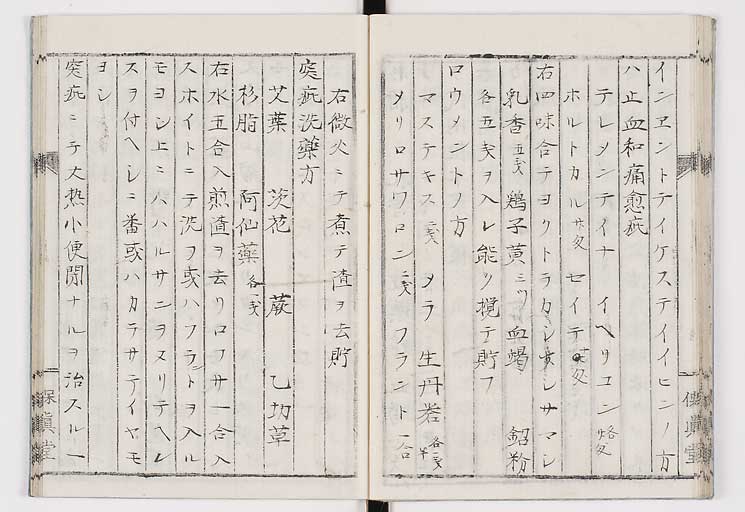 インエントテイケステイイヒンノ方
ハ止血和痛愈疵
テレメンテイナ イヘリコン
ホルトカル セイテ
右四味合テヨクトラカシ サマシ
乳香 五戔 鶏子黄 三ツ 血蝎 鉛粉
各五戔ヲ入レ能ク攪テ貯フ
ロウメントノ方
マステキス 二戔 メラ 生丹岩 各一戔半
メリロサワロン 二戔 フラント 一合
右微火ニテ煮テ渣ヲ去貯
突疵洗藥方
艾葉 茨花 蕨 乙切草
杉脂 阿仙藥 各一戔
右水五合入煎渣ヲ去リロフサ一合入
スホイトニテ洗フ或ハフラントヲ入ル
モヨシ上ニハハルサニヲヌリテヘレ
スヲ付ヘシニ番或ハカラサテイヤモ
ヨシ
突疵ニテ大熱小便閉ナルヲ治スル一
保眞堂
保眞堂